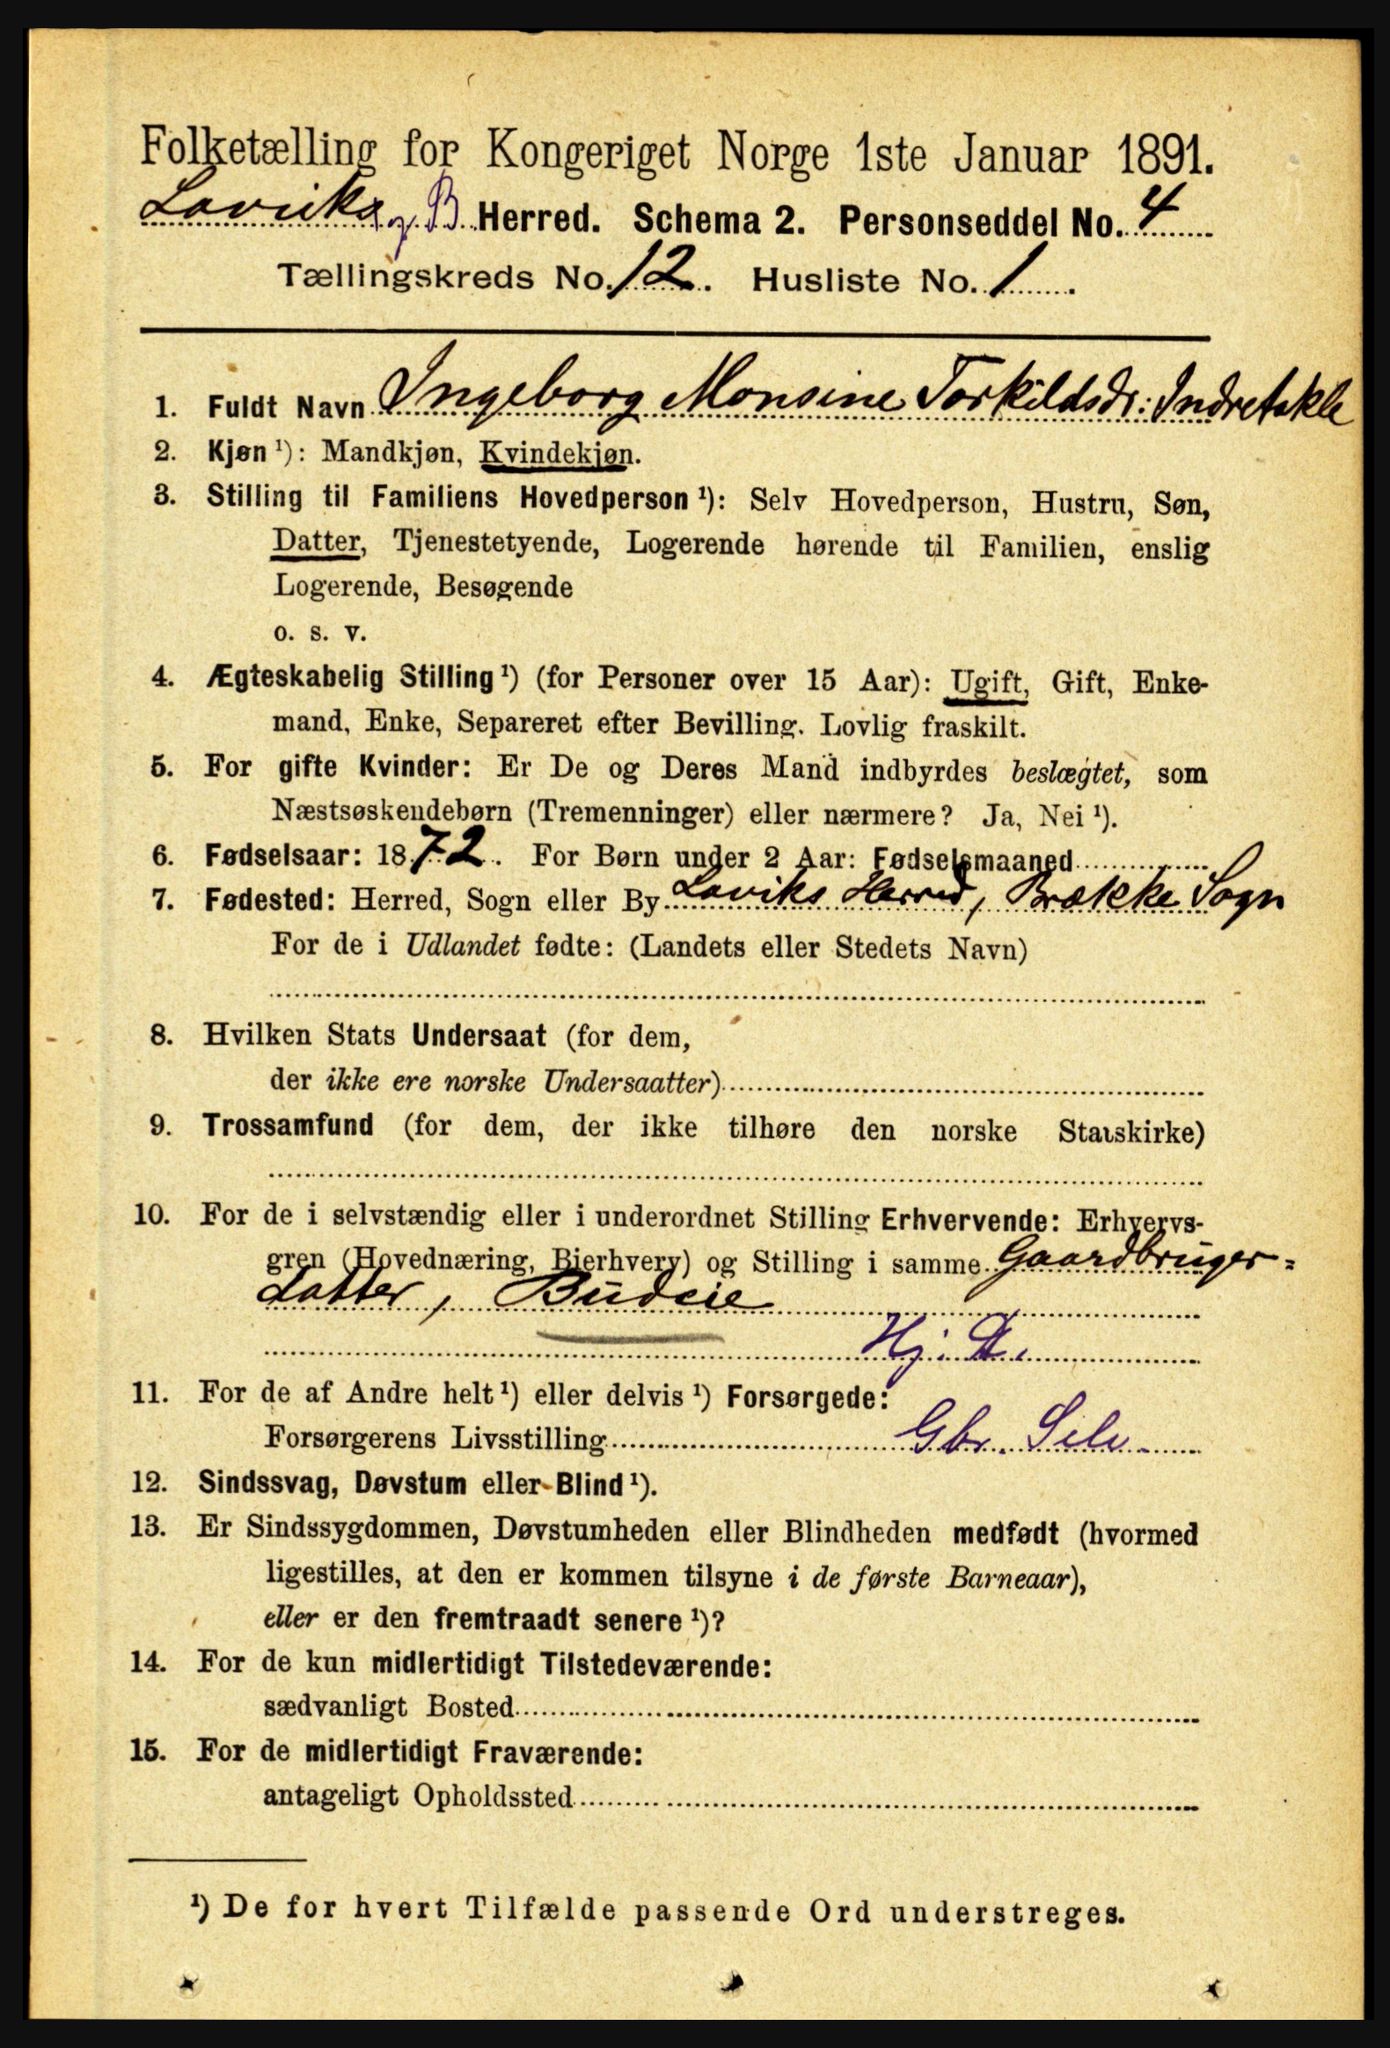 Folketælling for Kongeriget Norge 1ste Januar 1891.
Laviks og B. Herred. Schema 2. Personseddel No. 4
Tællingskreds No. 12. Husliste No. 1.
1. Fuldt Navn Ingeborg Monsine Torkildsdr. Indretakle
2. Kjøn ¹): Mandkjøn, Kvindekjøn.
3. Stilling til Familiens Hovedperson ¹): Selv Hovedperson, Hustru, Søn,
Datter, Tjenestetyende, Logerende hørende til Familien, enslig
Logerende, Besøgende
o. s. v.
4. Ægteskabelig Stilling ¹) (for Personer over 15 Aar): Ugift, Gift, Enke-
mand, Enke, Separeret efter Bevilling. Lovlig fraskilt.
5. For gifte Kvinder: Er De og Deres Mand indbyrdes beslægtet, som
Næstsøskendebørn (Tremenninger) eller nærmere? Ja, Nei ¹).
6. Fødselsaar: 1872. For Børn under 2 Aar: Fødselsmaaned
7. Fødested: Herred, Sogn eller By Laviks Herred, Brække Sogn
For de i Udlandet fødte: (Landets eller Stedets Navn)
8. Hvilken Stats Undersaat (for dem,
der ikke ere norske Undersaatter)
9. Trossamfund (for dem, der ikke tilhøre den norske Statskirke)
10. For de i selvstændig eller i underordnet Stilling Erhvervende: Erhvervs-
gren (Hovednæring, Bierhverv) og Stilling i samme Gaardbruger-
datter, Budeie
Hj. D.
11. For de af Andre helt ¹) eller delvis ¹) Forsørgede:
Forsørgerens Livsstilling Gbr. Selv
12. Sindssvag, Døvstum eller Blind ¹).
13. Er Sindssygdommen, Døvstumheden eller Blindheden medfødt (hvormed
ligestilles, at den er kommen tilsyne i de første Barneaar),
eller er den fremtraadt senere ¹)?
14. For de kun midlertidigt Tilstedeværende:
sædvanligt Bosted
15. For de midlertidigt Fraværende:
antageligt Opholdssted
¹) De for hvert Tilfælde passende Ord understreges.